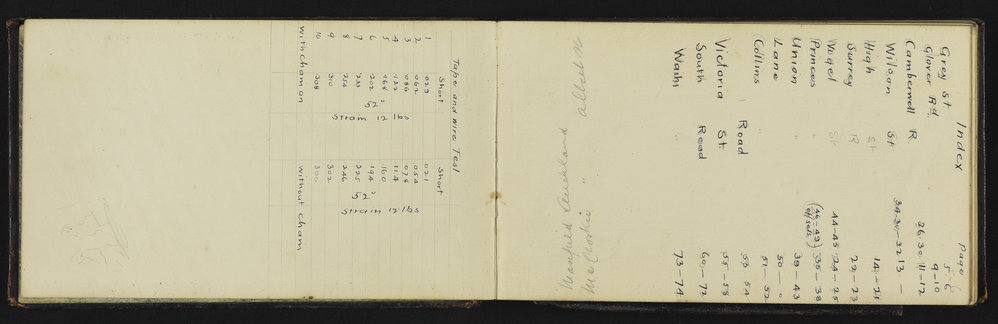 Tape and Wire Test
Short Short
1 .029 .021
2 .062 .054
3 .086 .078
4 .132 .114
5 .168 160
6 202 194
7 233 225
8 254 246
9 310 302
10 308 300
52° 52°
Strain 12 lbs Strain 12 lbs
With Cham on without Cham
Index Page
Grey St 5-6
Glover Rd 9-10
Camberwell R. 26. 30. 11-12
Wilson St 34-30-32 13 -
High St 14-21
Surrey R 22-23
Vogel St 44-45 24-25
Princes " (46-49 offsets) 35-38
Union " 39-43
Lane 50-0
Collins " 51-52
Road 53 54
Victoria St. 55-58
South Road 60-72
Waihi " 73-74
Auckland
"